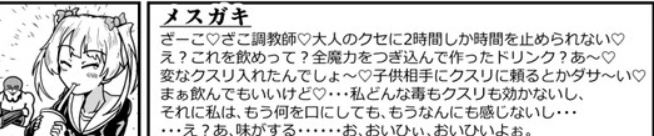 メスガキ
ざーこ♡ざこ調教師♡大人のクセに2時間しか時間を止められない♡
え？これを飲めって？全魔力をつぎ込んで作ったドリンク？あ～♡
変なクスリ入れたんでしょ～♡子供相手にクスリに頼るとかダサ～い♡
まぁ飲んでもいいけど♡･･･私どんな毒もクスリも効かないし、
それに私は、もう何を口にしても、もうなんにも感じないし･･･
･･･え？あ、味がする･･････お、おいひぃ、おいひいよぉ。